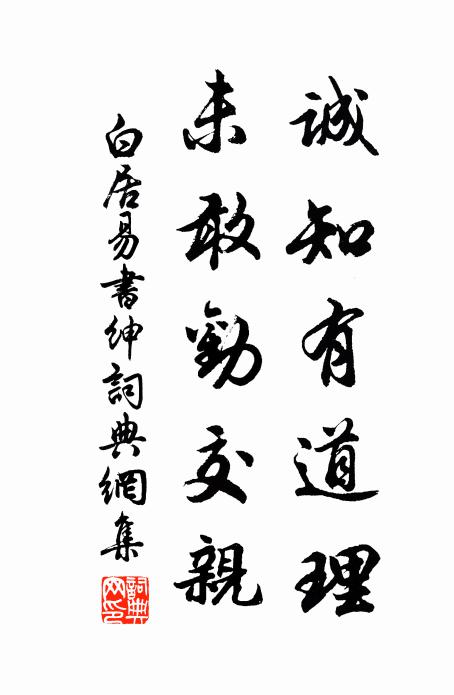 誠知有道理
未敢勸交親
白居易書紳詞典網集
詞典网印